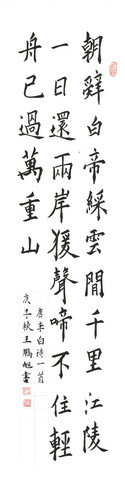 朝辭白帝綵雲間千里江陵
一日還兩岸猨聲啼不住輕
舟已過萬重山
唐李白诗一首
庚子秋王鹏旭書